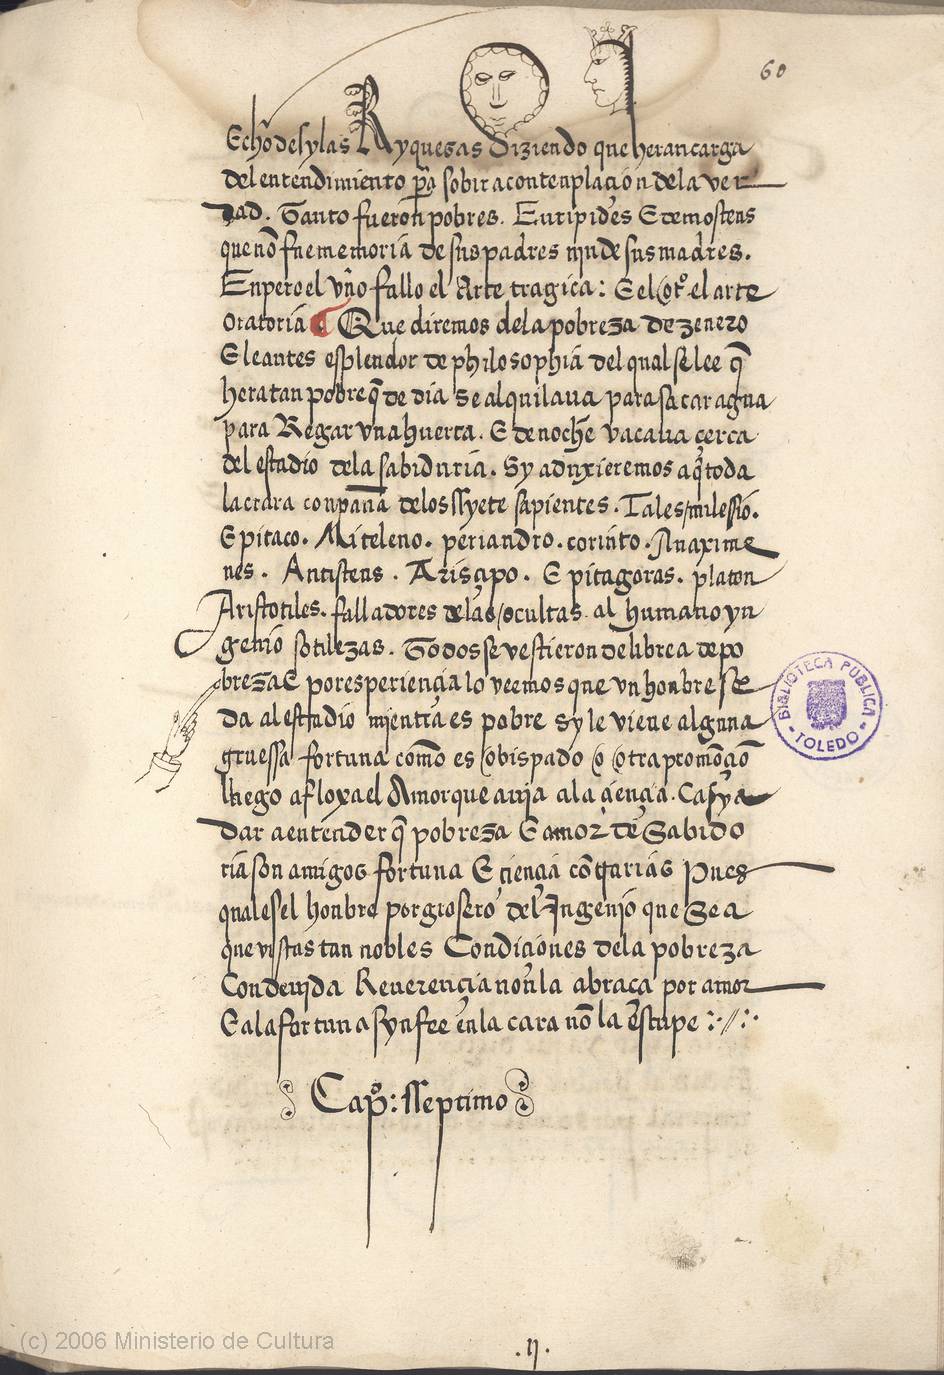 60
Echo de sy las Ryquesas diziendo que heran carga
del entendimiento pa sobir a contenplaçion de la ver
dad. Tanto fueron pobres. Euripides E demostens
que no fue memoria de sus padres nin de sus madres.
Enpero el vno fallo el Arte tragica: E el otro. el arte
oratoria Que diremos de la pobreza de zenero
E leantes esplendor de philosophia del qual se lee que
hera tan pobre que de dia se alquilaua para sacar agua
para Regar vna huerta. E de noche vacaua çerca
del estudio de la sabiduria. Sy aduxieremos aqui toda
la clara conpania de los ssyete sapientes. Tales / milessio.
E pitaco. Miteleno. periandro. corinto. Anaxime
nes. Antistens. Aristipo. E pitagoras. platon
Aristotiles. falladores de las / ocultas. al humano yn
genio sotilezas. Todos se vestieron de librea de po
breza E por esperiençia lo veemos que vn honbre se
da al estudio mientra es pobre sy le viene alguna
gruessa fortuna como es obispado o otra promoçion
luego afloxa el Amor que auia a la çiençia. Casy a
dar a entender que pobreza E amor de Sabido
ria son amigos fortuna E çiençia contrarias Pues
qual es el honbre por grosero del Ingenio que Sea
que vistas tan nobles Condiçiones de la pobreza
Con deuida Reuerençia non la abraça por amor
E a la fortuna syn fee en la cara no la Escupe
Capo: sseptimo
BIBLIOTECA PUBLICA
- TOLEDO -
(c) 2006 Ministerio de Cultura